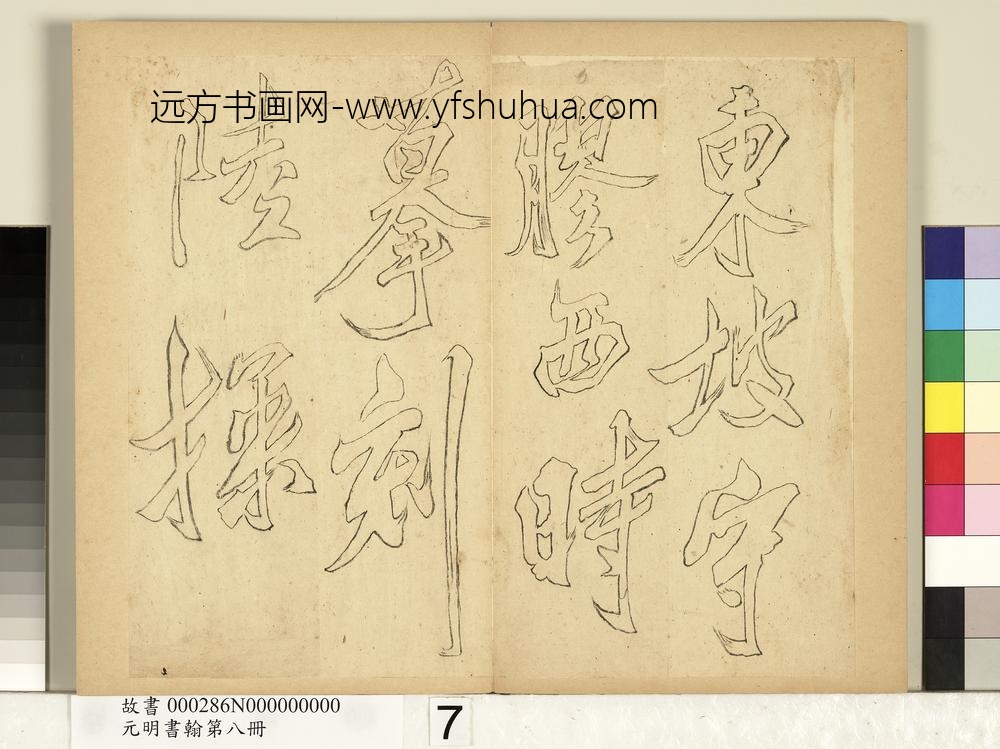 远方书画网-www.yfshuhua.com
東坡守
膠西時
摹刻
陸探
故書 000286N000000000
元明書翰第八冊
7